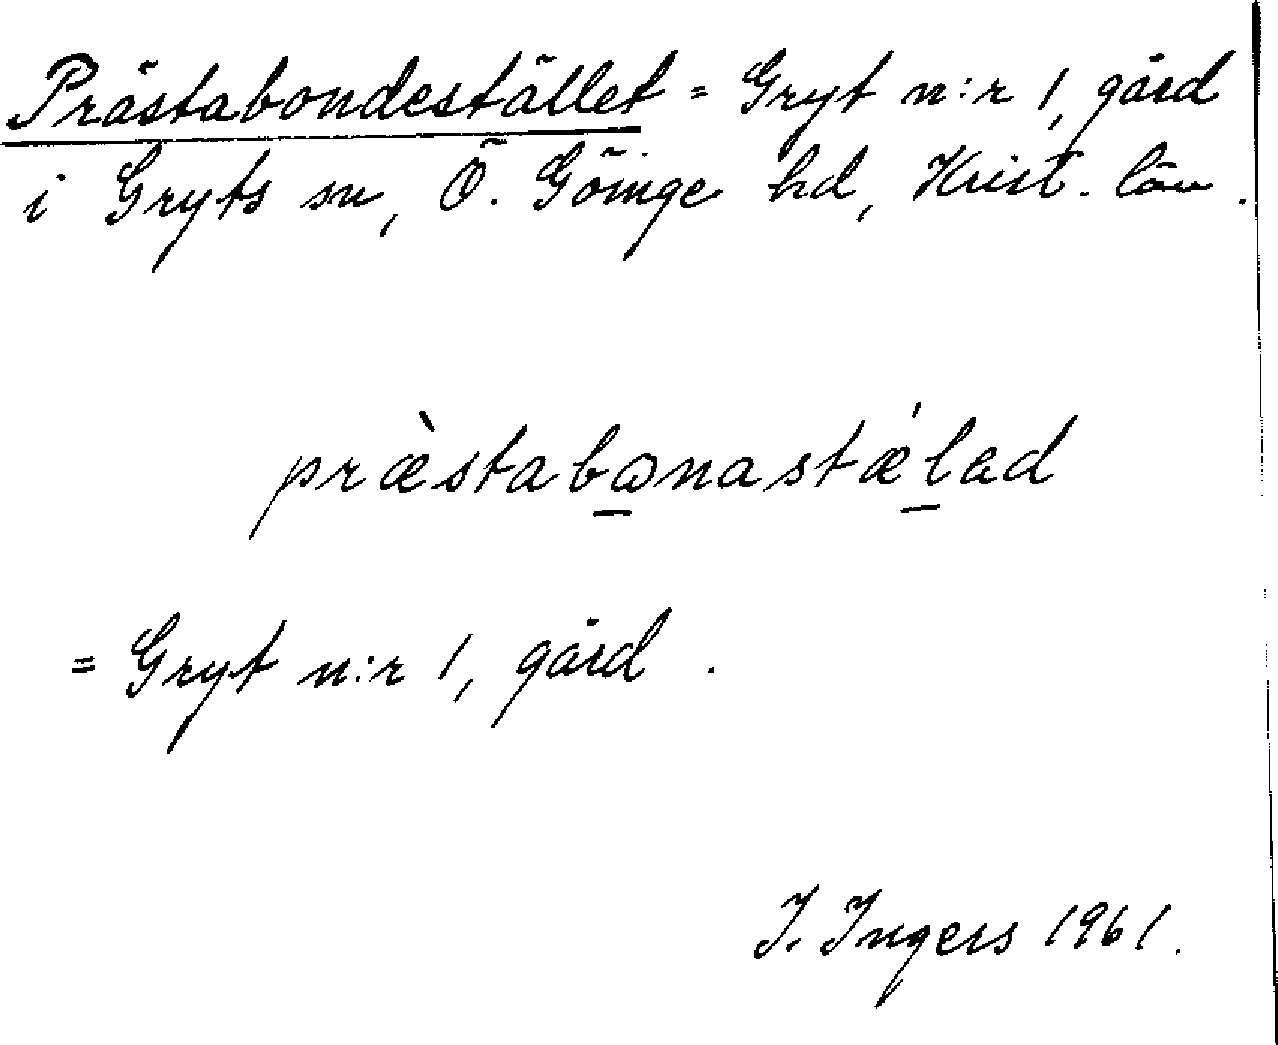 Prästabondestället = Gryt n:r 1, gård
i Gryts sn, Ö. Göinge hd, Krist. län.
præ̀stabωnastǽlad
= Gryt n:r 1, gård.
I. Ingers 1961.